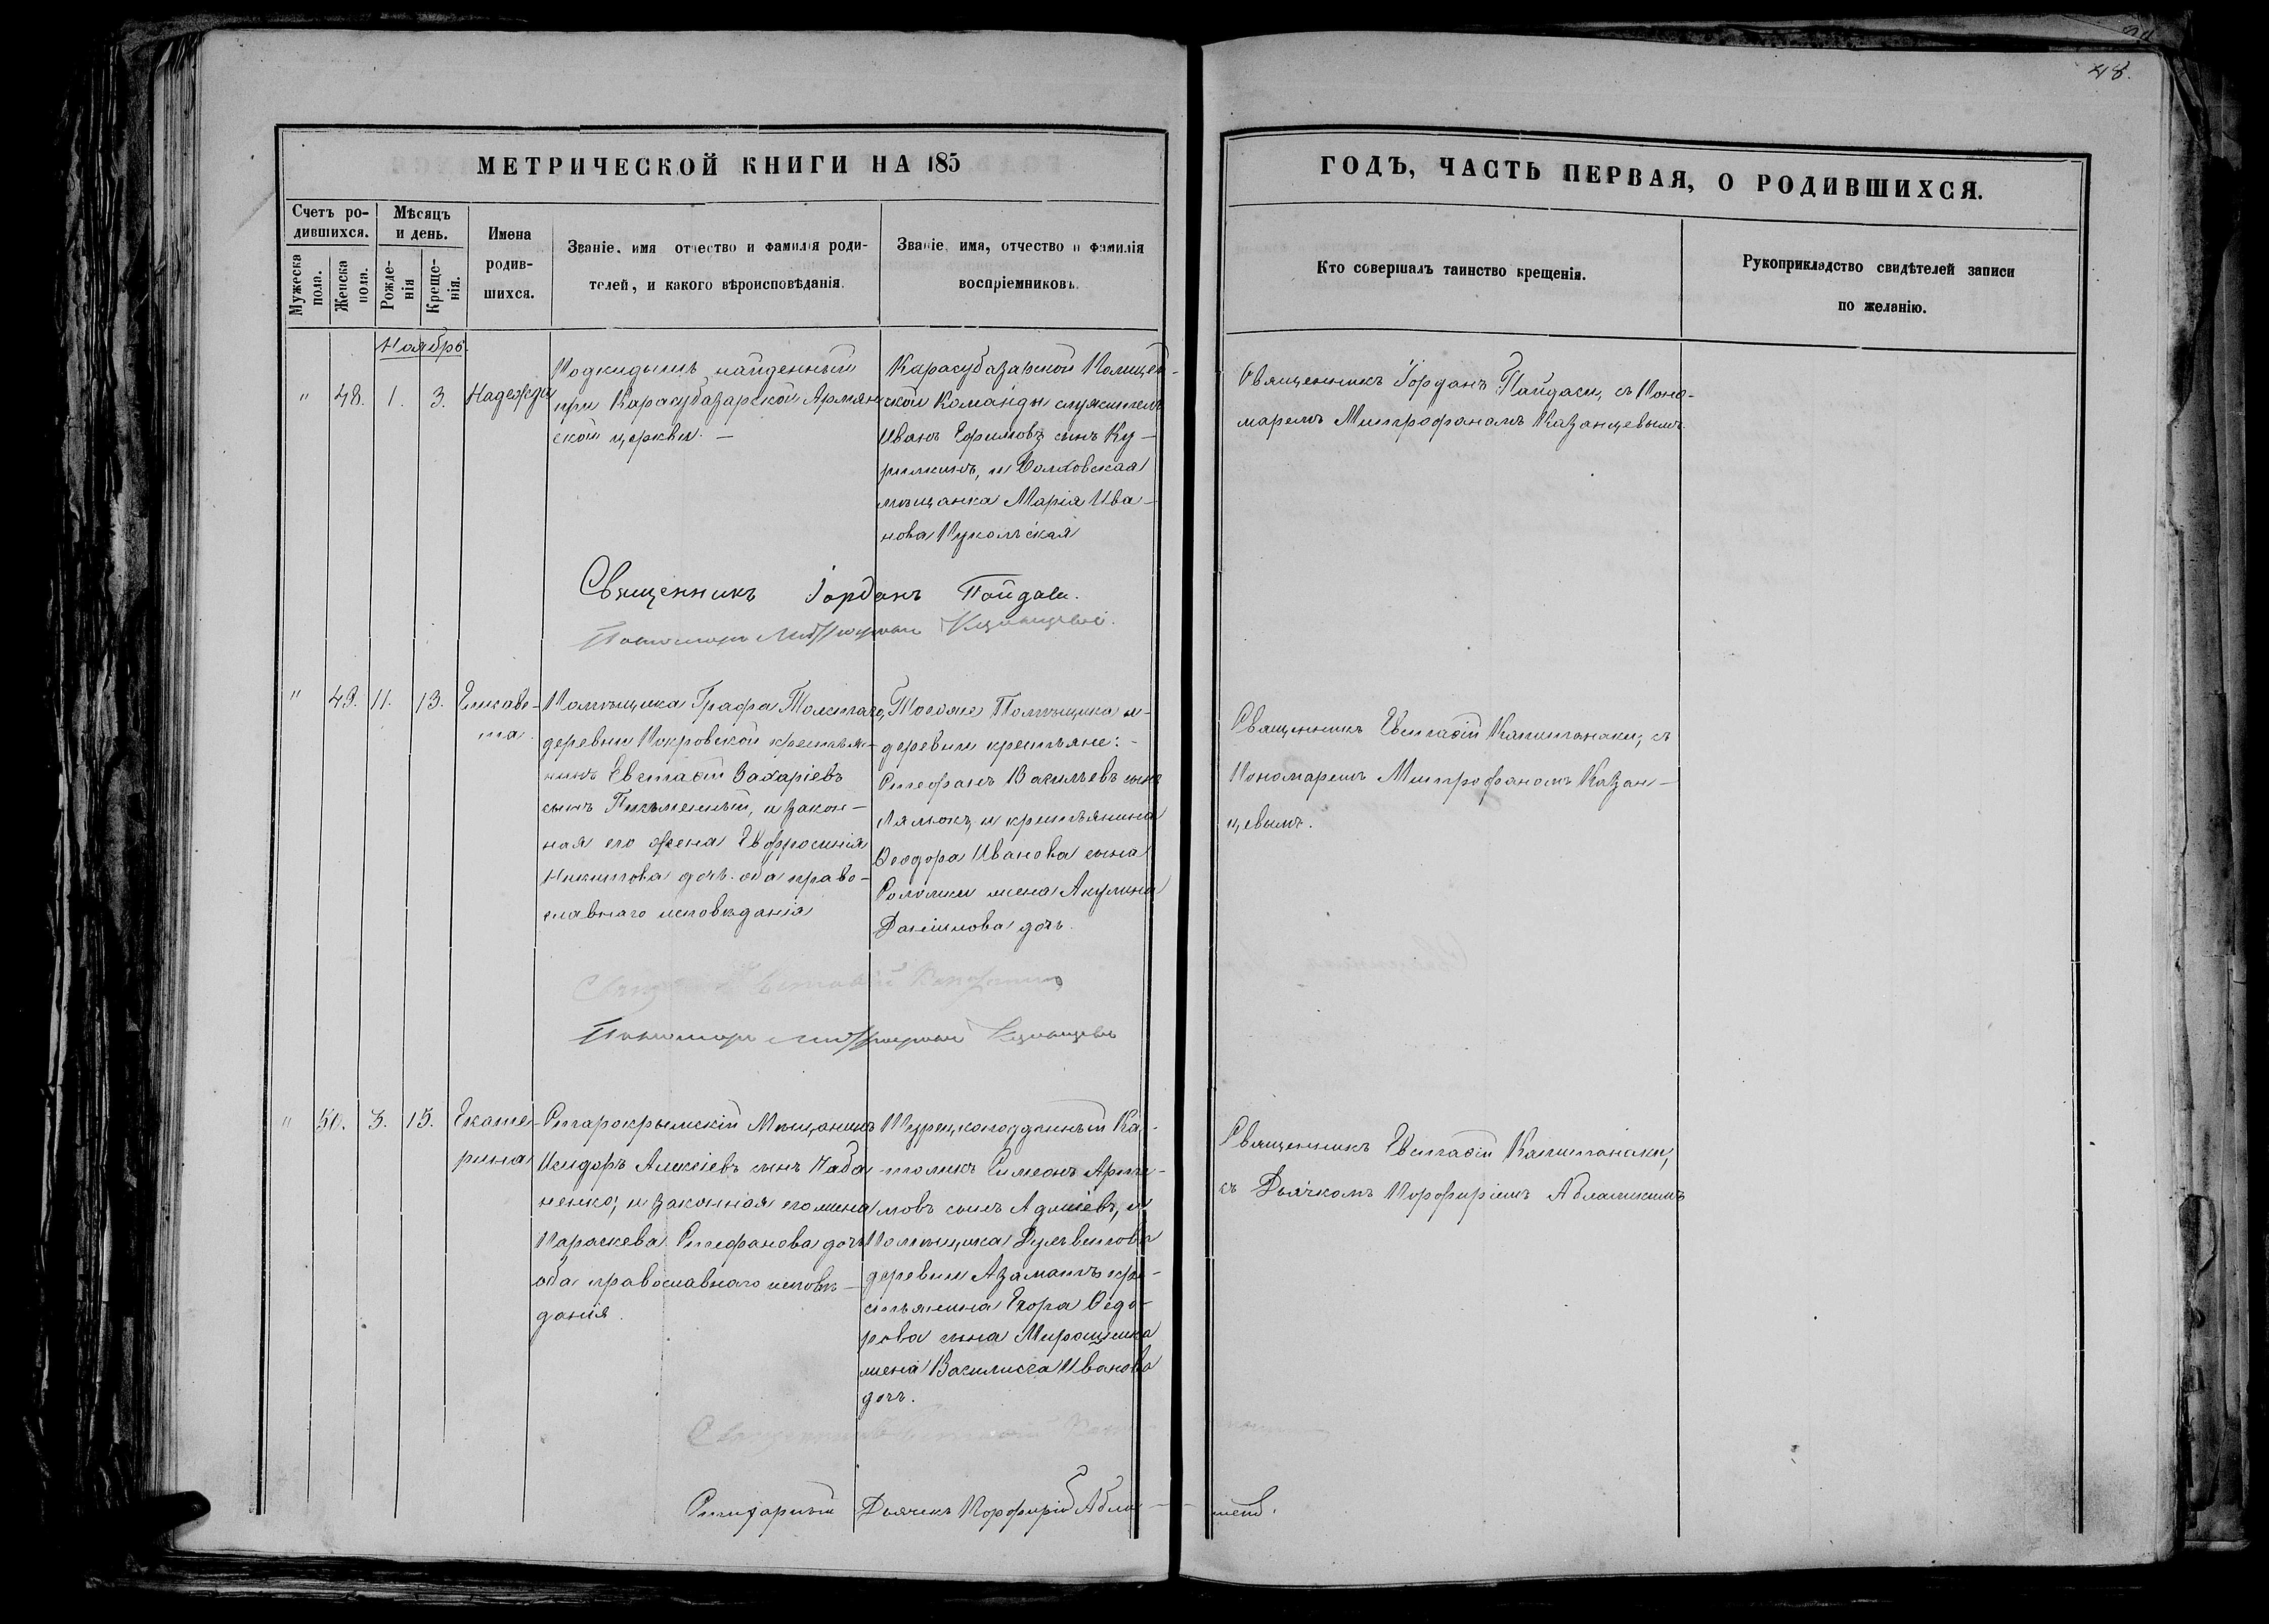 48.
МЕТРИЧЕСКОЙ КНИГИ НА 185
ГОДЪ, ЧАСТЬ ПЕРВАЯ, О РОДИВШИХСЯ.
Счетъ ро-
дившихся.
Мужеска
пола.
Женска
пола.
Мѣсяцъ
и день.
Рожде-
нія
Креще-
нія.
Имена
родив-
шихся.
Званіе, имя отчество и фамилія роди-
телей, и какого вѣроисповѣданія.
Званіе, имя, отчество и фамилія
воспріемниковъ.
Кто совершалъ таинство крещенія.
Рукоприкладство свидѣтелей записи
по желанію.
Ноябрь.
" 48. 1. 3. Надежда
Подкидышъ найденный
при Карасубазарской Армян
ской церкви. —
Карасубазарской Полицей-
ской Команды служитель
Иванъ Ефимовъ сынъ Ку-
рилкинъ, и Волховская
мѣщанка Марія Ива-
нова Пукальская
Священникъ Іорданъ Пайдаси, съ Поно-
маремъ Митрофаномъ Казанцевымъ
Священникъ Іорданъ Пайдаси.
Пономарь Митрофанъ Казанцевъ.
" 49. 11. 13. Елисаве-
та.
Помѣщика Графа Толстаго,
деревни Покровской крестьян-
нинъ Евстафій Захаріевъ
сынъ Письменный, и закон-
ная его жена Евфросинія
Никитова дочь. оба право-
славнаго исповѣданія
Тогоже Помѣщика и
деревни крестьяне:-
Стефанъ Васильевъ сынъ
Лялюкъ, и крестьянина
Ѳеодора Иванова сына
Соломки жена Акулина
Данiилова дочь.
Священникъ Евстафій Капитанаки, съ
Пономаремъ Митрофаномъ Казан-
цевымъ.
Священникъ Евстафій
Пономарь Митрофанъ Казанцевъ
" 50. 3. 15. Екате-
рина
Старокрымскій Мѣщанинъ
Исидоръ Алексіевъ сынъ Чаба
ненко, и законная его жена
Параскева Стефанова дочь
оба православнаго исповѣ-
данія.
Турецкоподданный Ка-
толикъ Симеонъ Арти-
мовъ сынъ Аджіевъ, и
Помѣщика Дульветова
деревни Азаматъ кре-
стьянина Егора Ѳедо-
рова сына Мирошника
жена Василиса Иванова
дочь.
Священникъ Евстафій Капитанаки,
съ Дьячкомъ Порфиріемъ Абламскимъ
Священникъ Евстафій
Дьячекъ Порфирій